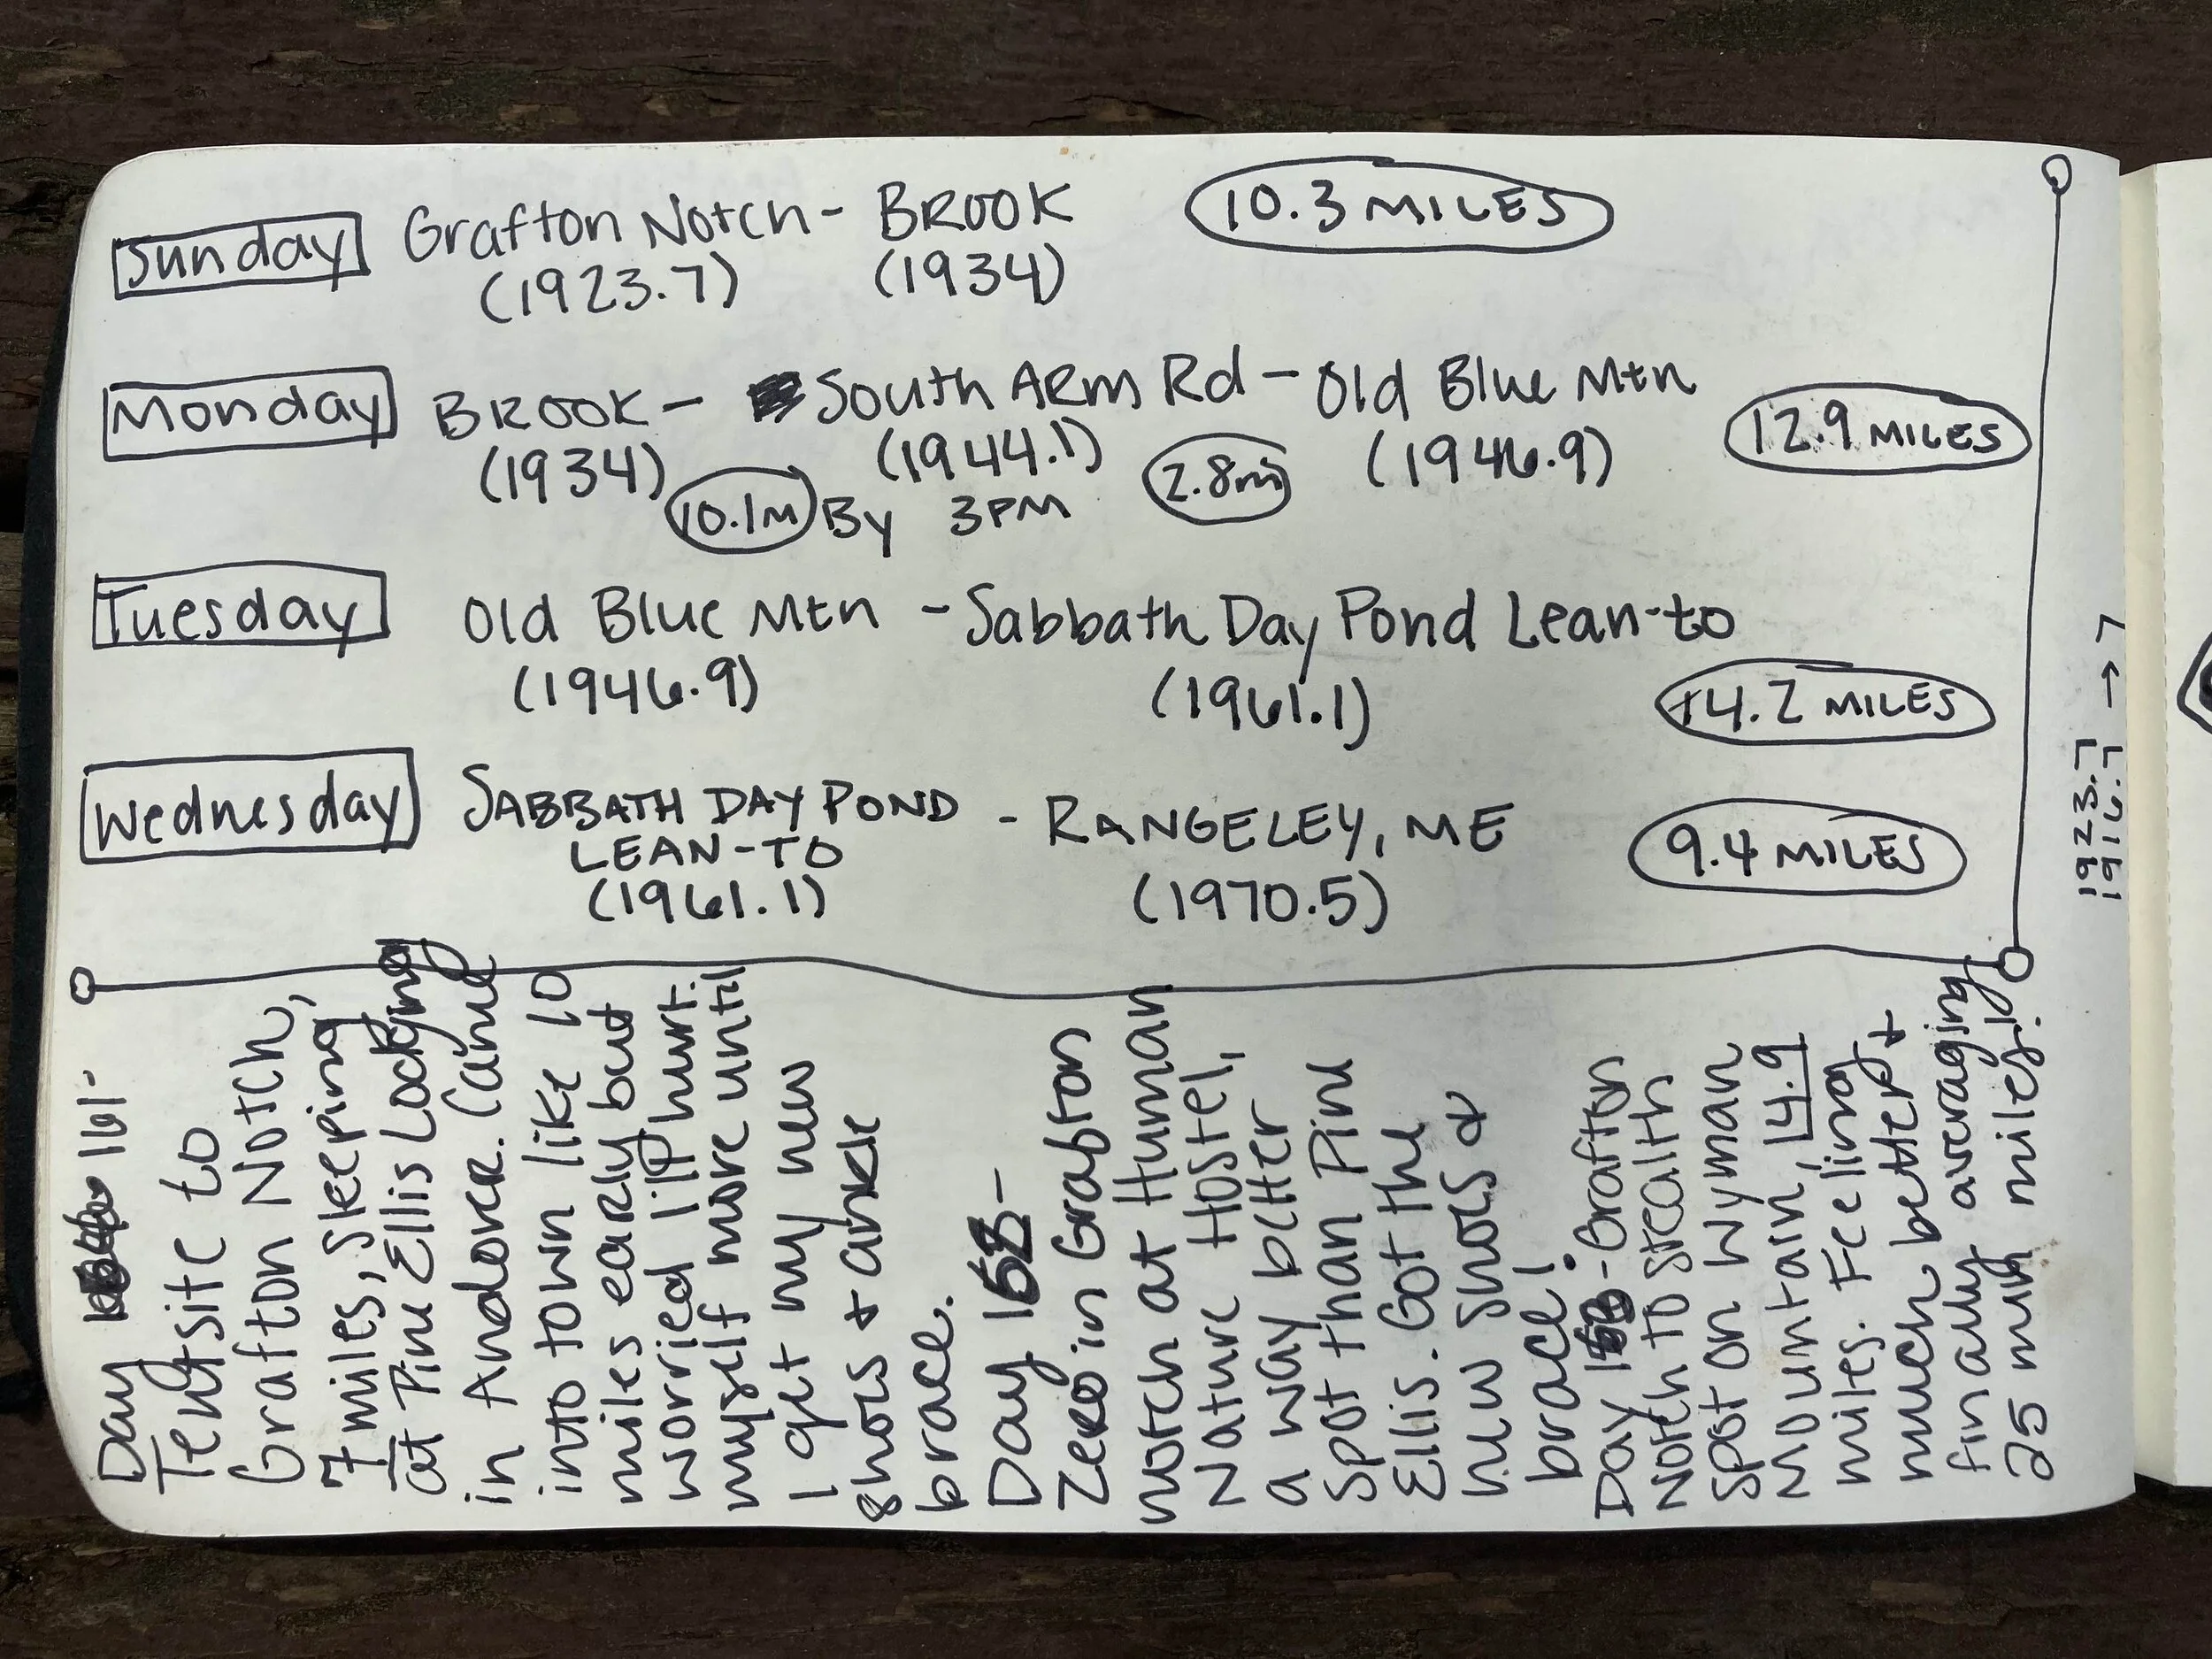 Sunday Grafton Notch - BROOK 10.3 MILES
(1923.7) (1934)
Monday BROOK - South ARm Rd - Old Blue Mtn
(1934) (1944.1) (1946.9) 12.9 MILES
10.1M By 3PM 2.8mi
Tuesday Old Blue Mtn - Sabbath Day Pond Lean-to
(1946.9) (1961.1) 14.2 MILES
Wednesday SABBATH DAY POND - RANGELEY, ME
LEAN-TO 9.4 MILES
(1961.1) (1970.5)
1923.7
1916.7 → 7
Day 161-
Tentsite to
Grafton Notch,
7 miles, sleeping
at Pine Ellis Lodging
in Andover. Came
into town like 10
miles early but
worried I'll hurt
myself more until
I get my new
shoes + ankle
brace.
Day 162-
Zero in Grafton
notch at Human
Nature Hostel,
a way better
spot than Pine
Ellis. Got the
new shoes +
brace!
Day - Grafton
Notch to stealth
spot on Wyman
Mountain, 14.9
miles. Feeling
much better +
finally averaging
25 min miles!